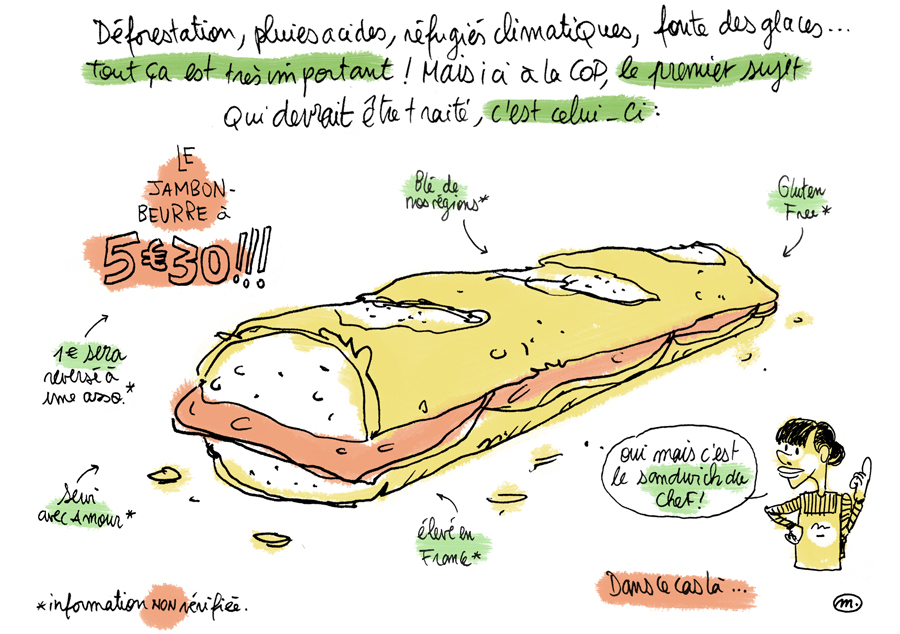 Déforestation, pluies acides, réfugiés climatiques, fonte des glaces...
tout ça est très important ! Mais ici à la COP, le premier sujet
qui devrait être traité, c'est celui-ci :
LE
JAMBON-
BEURRE à
5€30!!!
Blé de
nos régions*
Gluten
Free*
1€ sera
reversé à
une asso.*
Servi
avec Amour*
élevé en
France*
oui mais c'est
le sandwich du
chef!
Dans ce cas là ...
*information NON vérifiée.
m.